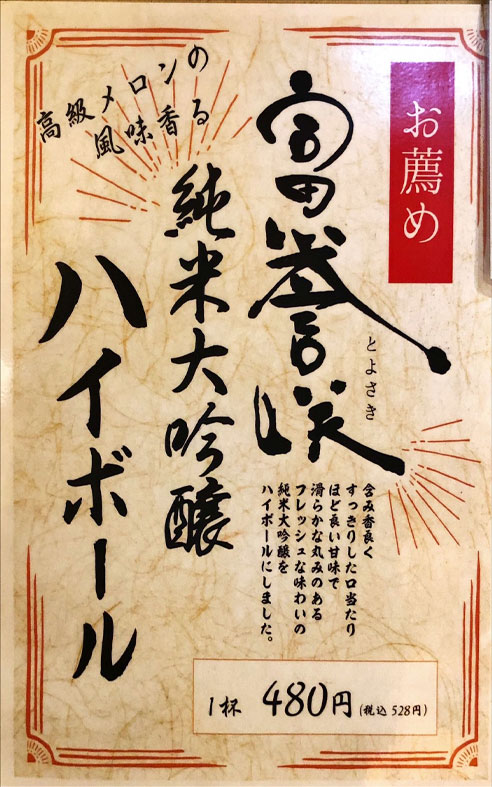 お薦め
富誉咲
とよさき
高級メロンの
風味香る
純米大吟醸
ハイボール
含み香良く
すっきりした口当たり
ほど良い甘味で
滑らかな丸みのある
フレッシュな味わいの
純米大吟醸を
ハイボールにしました。
1杯 480円(税込 528円)